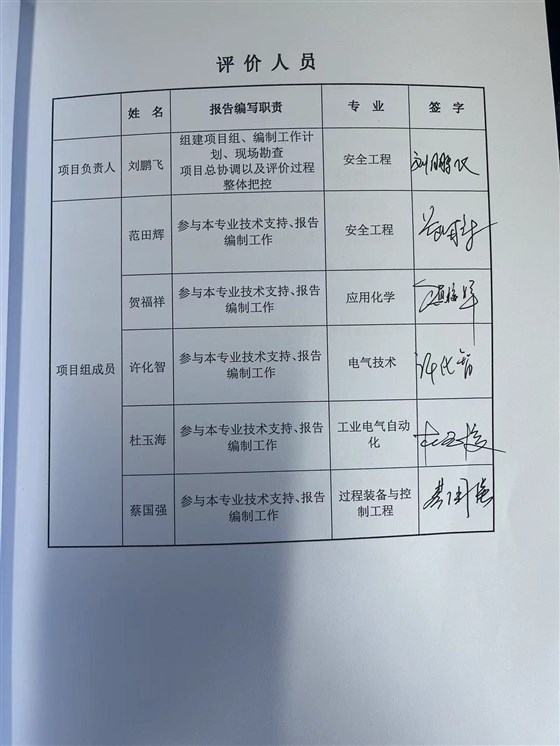 评价人员
姓 名 报告编写职责 专 业 签 字
项目负责人 刘鹏飞 组建项目组、编制工作计
划、现场勘查
项目总协调以及评价过程
整体把控 安全工程 刘鹏飞
项目组成员
范田辉 参与本专业技术支持、报告
编制工作 安全工程
贺福祥 参与本专业技术支持、报告
编制工作 应用化学
许化智 参与本专业技术支持、报告
编制工作 电气技术 许化智
杜玉海 参与本专业技术支持、报告
编制工作 工业电气自动
化
蔡国强 参与本专业技术支持、报告
编制工作 过程装备与控
制工程 蔡国强